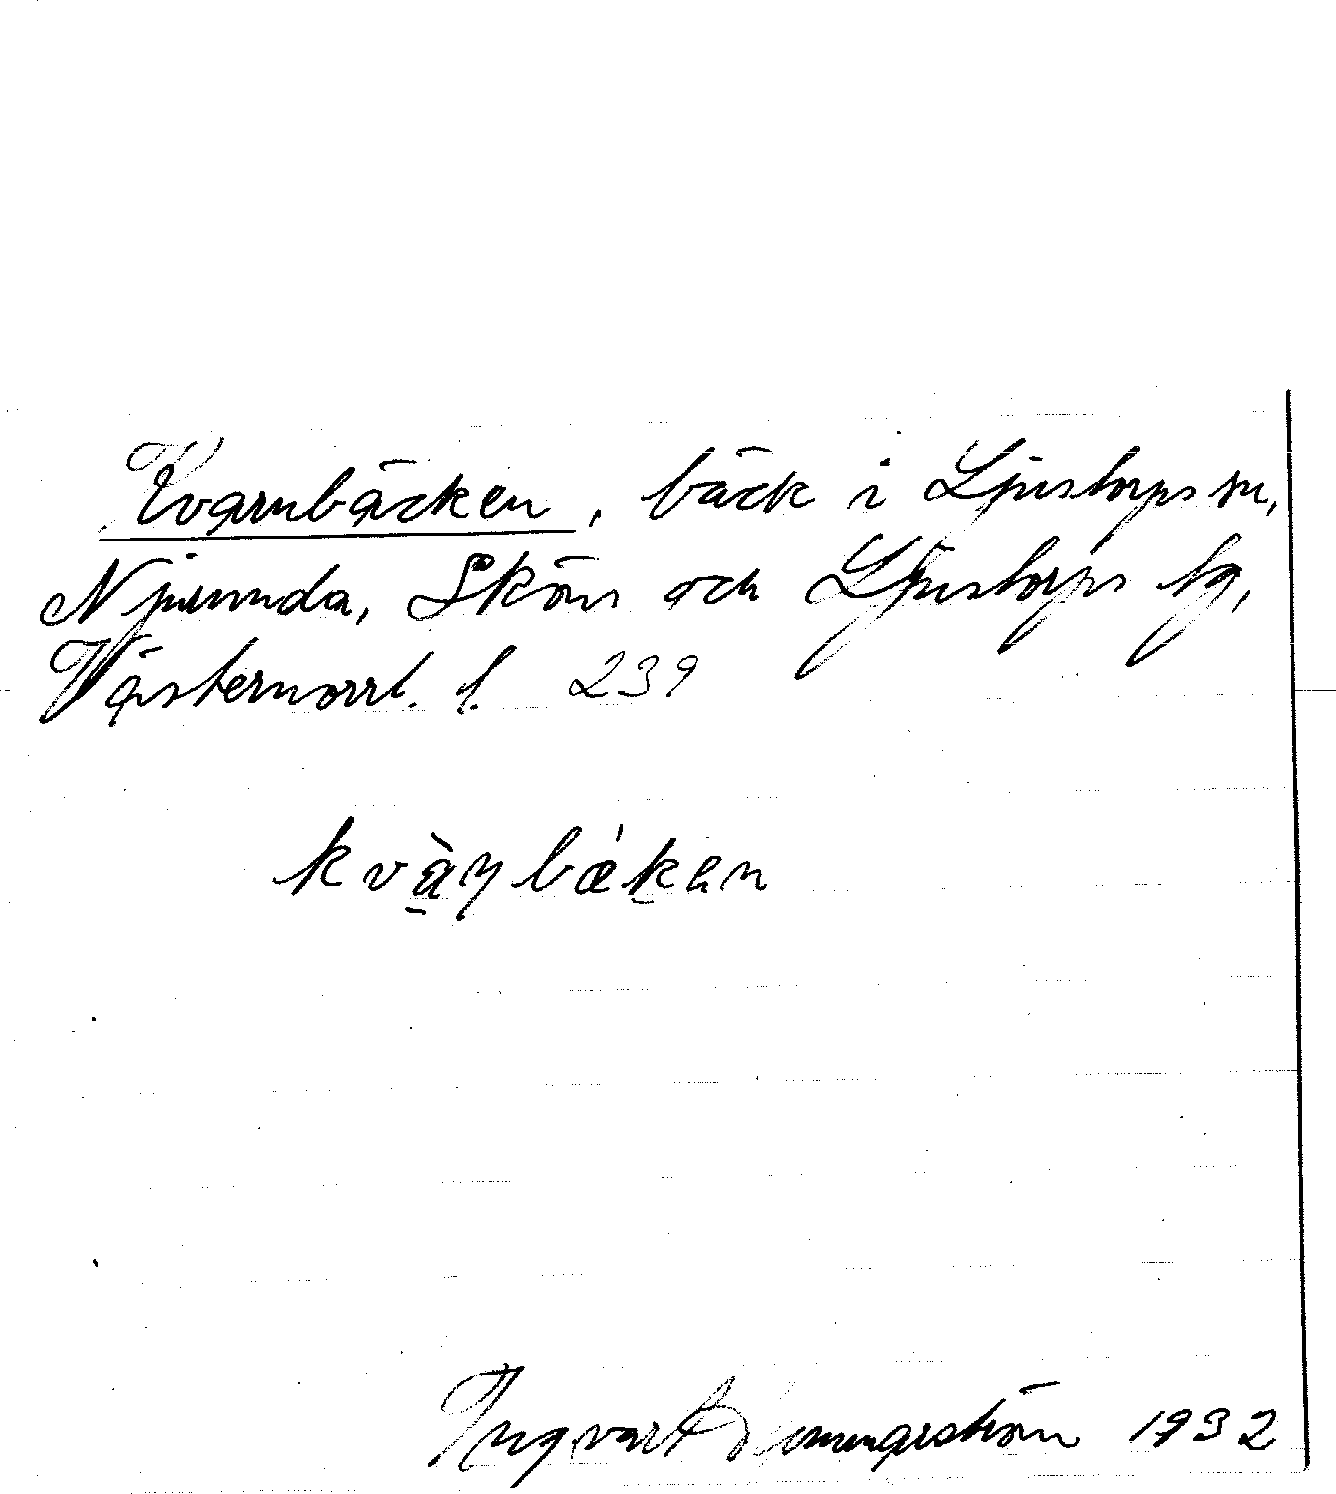 Kvarnbäcken, bäck i Ljustorps sn,
Njurunda, Sköns och Ljustorps tg,
Västernorrl. l. 239
kvàɳbækan
Ingvar 1932